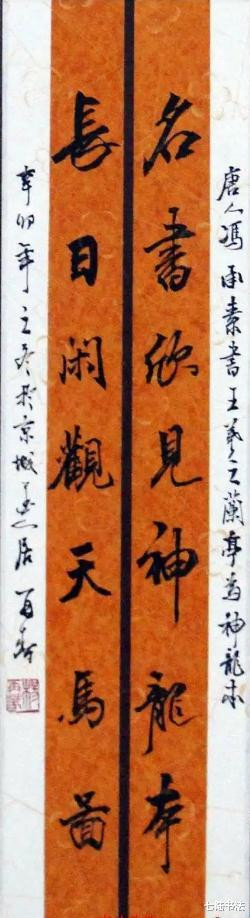 唐人馮承素書王羲之蘭亭為神龍本
名書欣見神龍本
長日閑觀天馬圖
辛卯年立冬於京城居
书法